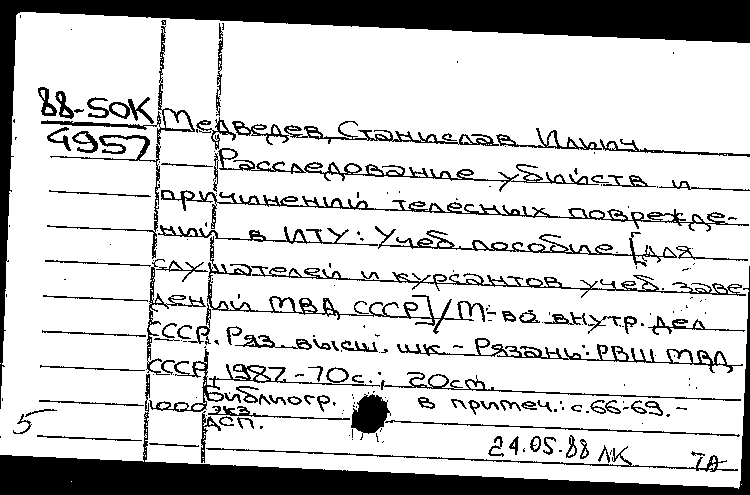 88-50К
4957
Медведев, Станислав Ильич.
Расследование убийств и
причинений телесных поврежде-
ний в ИТУ: Учеб. пособие [для
слушателей и курсантов учеб. заве-
дений МВД СССР]/М-во внутр. дел
СССР. Ряз. высш. шк. - Рязань: РВШ МВД
СССР, 1987. - 70с.; 20см.
Библиогр. в примеч.: с.66-69. -
1000 экз.
ДСП.
5
24.05.88 ЛК 7А